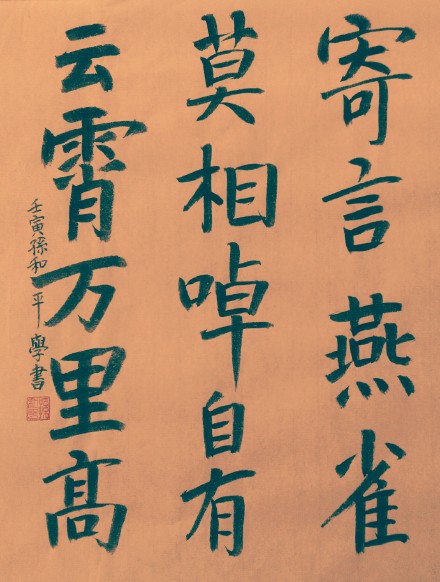 寄言燕雀
莫相啅自有
云霄万里高
壬寅孫和平學書